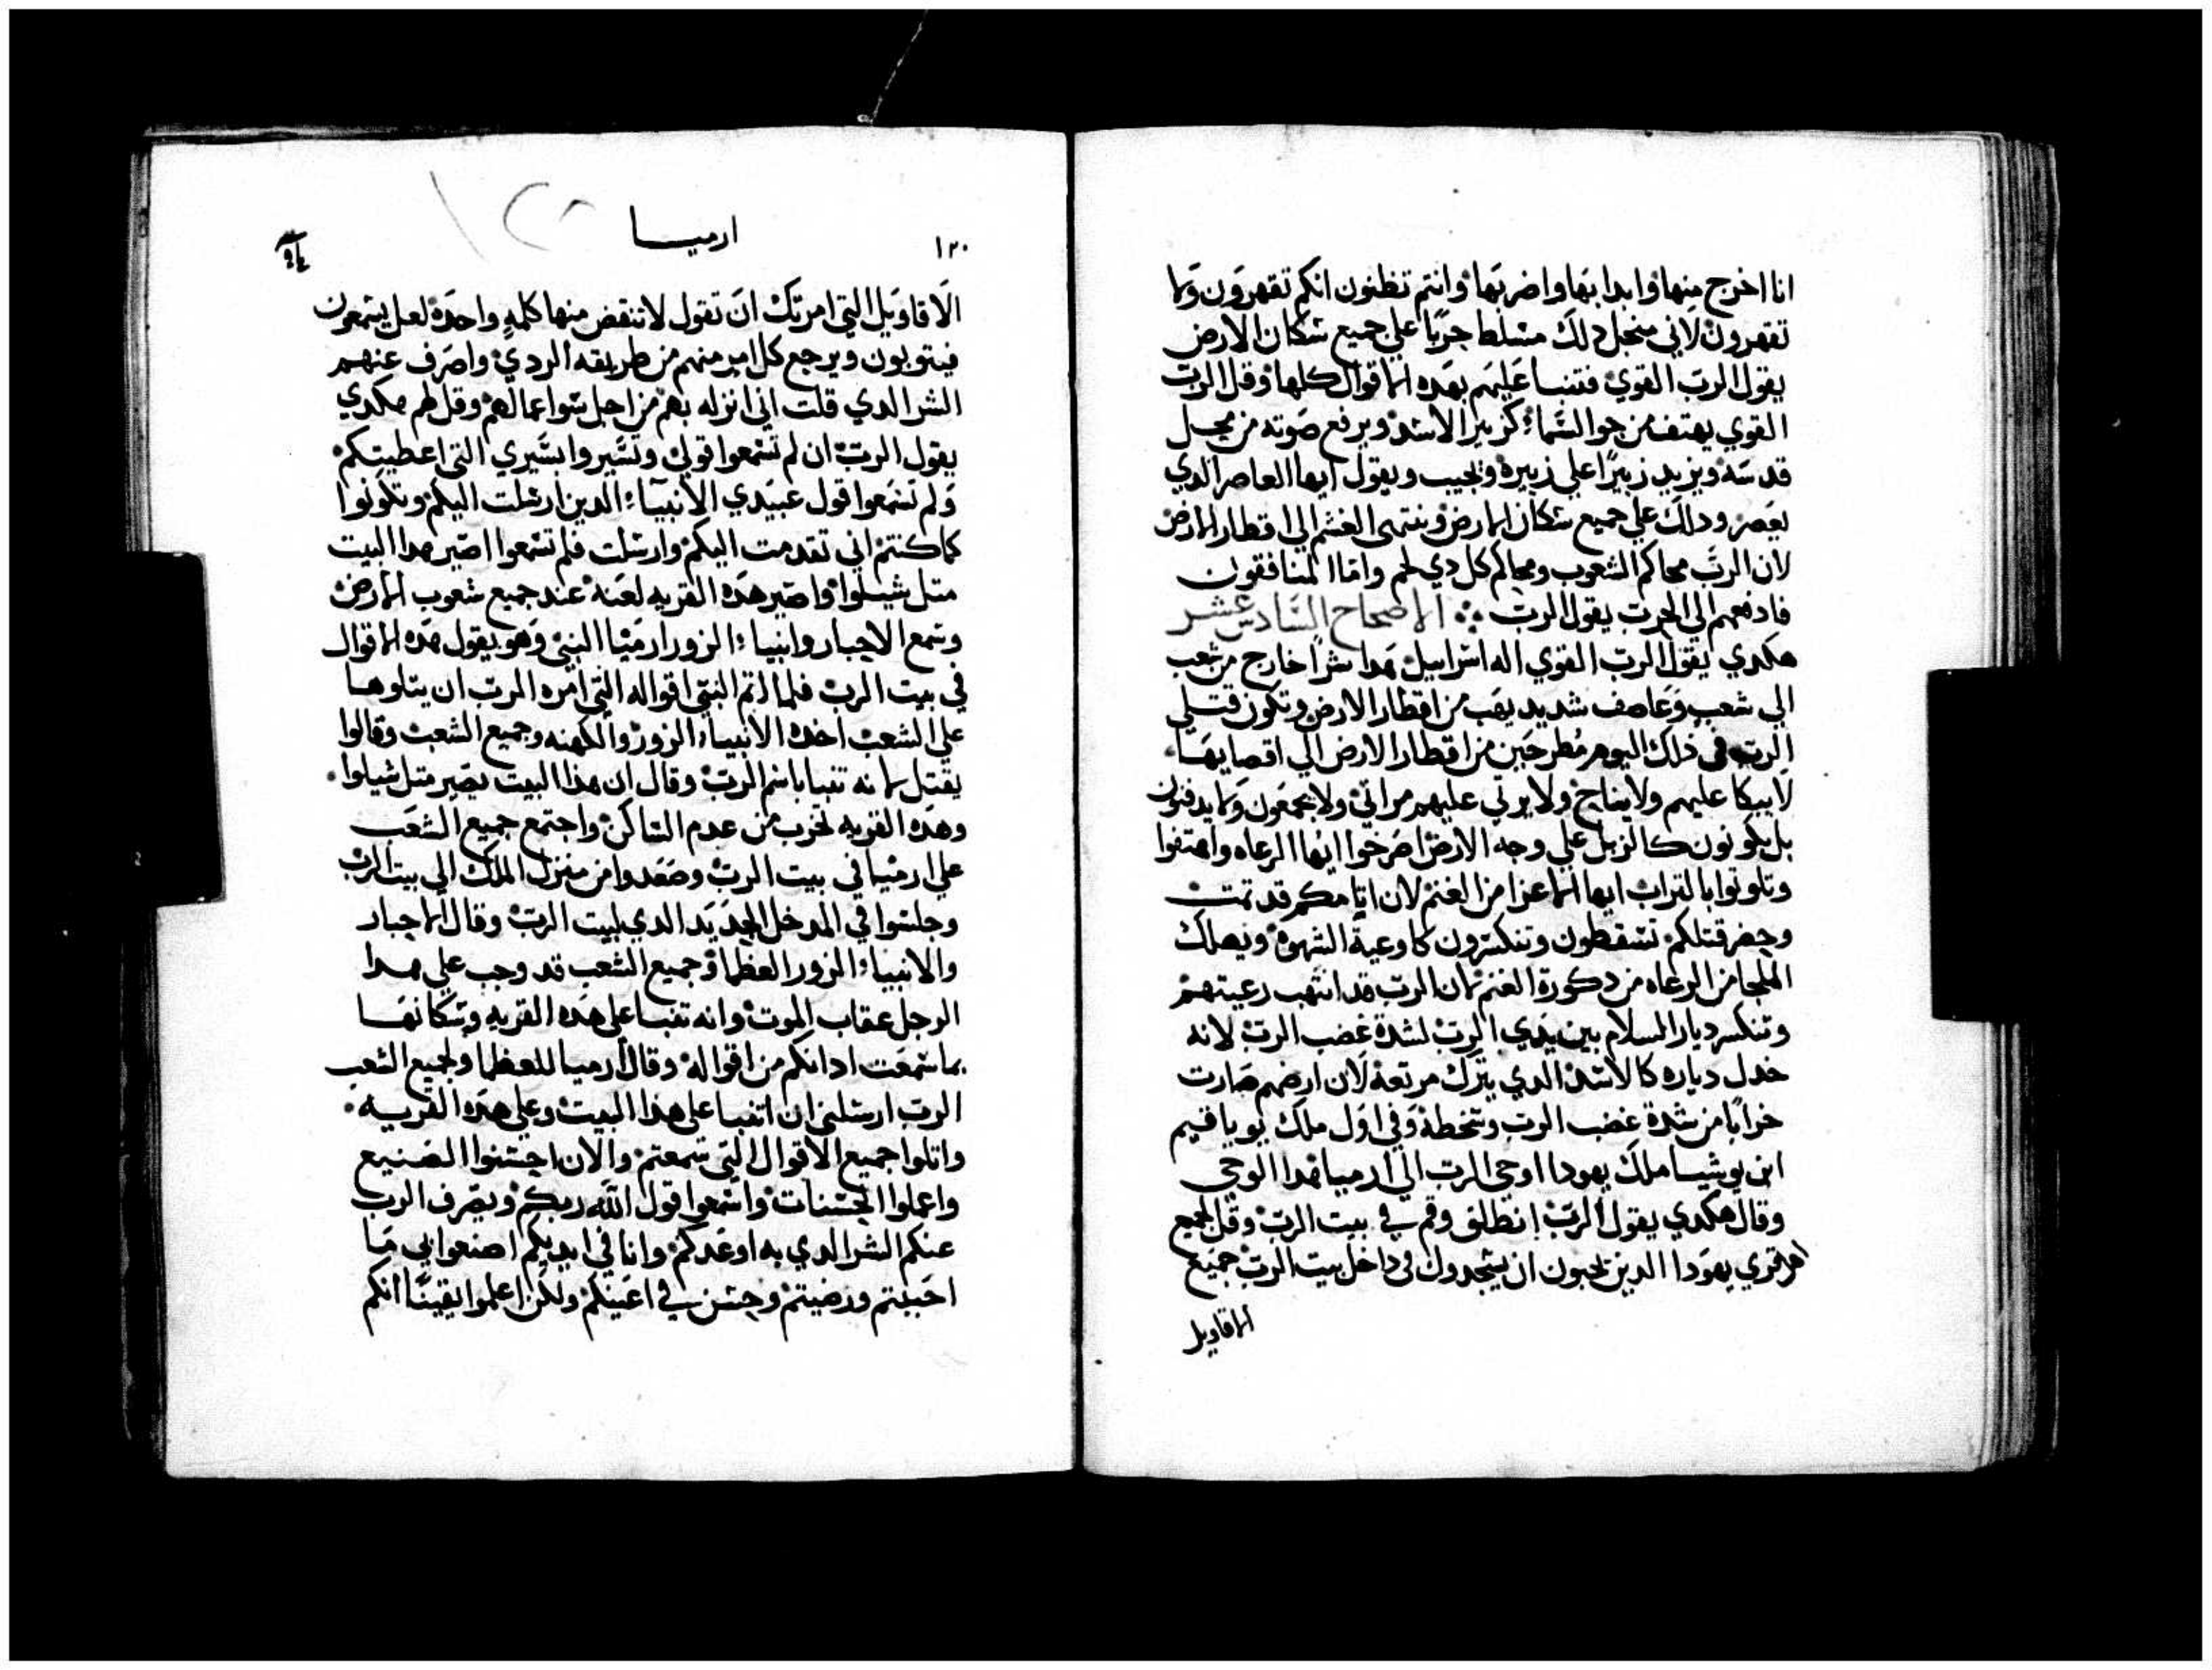 انا اخرج منها وابدا بها واضربها وانتم تظنون انكم تقهرون ولا
تقهرون لاني منجل دلك مسلط حربًا علي جميع سكان الارض
يقول الرب القوي فتنبا عليهم بهده الاقوال كلها وقل الرب
القوي يهتف من جو السماء كزبير الاسد ويرفع صوته من محل
قدسه ويزيد زبيرًا علي زبيره ويجيب ويقول ايها العاصر الدي
يعصر ودلك علي جميع سكان الارض وينتهي الغشم الي اقطار الارض
لان الرب محاكم الشعوب ومحاكم كل دي لحم واما المنافقون
فادفعهم الي الحرب يقول الرب الاصحاح السادس عشر
هكدي يقول الرب القوي اله اسراييل هدا شرًا خارج من شعب
الي شعب وعاصف شديد يهب من اقطار الارض وتكون قتلي
الرب في ذلك اليوم مطرحين من اقطار الارض الي اقصايها
لا يبكا عليهم ولا يناح ولا يرتي عليهم مراتي ولا يجمعون ولا يدفنون
بل يكونون كالزبل علي وجه الارض اصرخوا ايها الرعاه واهتفوا
وتلوتوا بالتراب ايها الاعزا من الغنم لان ايامكم قد تمت
وحضر قتلكم تسقطون وتنكسرون كاوعية الشهوه ويهلك
الملجا من الرعاه من دكورة الغنم لان الرب قد انتهب رعيتهم
وتنكسر ديار السلام بين يدي الرب لشدة غضب الرب لانه
خدل دياره كالاسد الدي يترك مرتعه لان ارضهم صارت
خرابًا من شدة غضب الرب وسخطه وفي اول ملك يوياقيم
ابن يوشيا ملك يهودا اوحي الرب الي ارميا بهدا الوحي
وقال هكدي يقول الرب انطلق وقم في بيت الرب وقل لجميع
اهل قري يهودا الدين يحبون ان يسجدون في داخل بيت الرب جميع
الاقاويل
ارميا
١٢٠
الاقاويل التي امرتك ان تقول لا تنقض منها كلمه واحده لعل يسمعون
فيتوبون ويرجع كل امر منهم من طريقه الردي واصرف عنهم
الشر الدي قلت اني انزله بهم من اجل سوا اعمالهم وقل لهم هكدي
يقول الرب ان لم تسمعوا قولي وتسيروا بسيري التي اعطيتكم
ولم تسمعوا قول عبيدي الانبياء الدين ارسلت اليكم وتكونوا
كما كنتم اني تقدمت اليكم وارسلت فلم تسمعوا اصير هدا البيت
متل شيلوا واصير هده القريه لعنه عند جميع شعوب الارض
وسمع الاحبار وانبياء الزور ارميا النبي وهو يقول هده الاقوال
في بيت الرب فلما اتم النبي اقواله التي امره الرب ان يتلوها
علي الشعب اخده الانبياء الزور والكهنه وجميع الشعب وقالوا
يقتل لانه تنبا باسم الرب وقال ان هذا البيت يصير متل شيلوا
وهده القريه تخرب من عدم الساكن واجتمع جميع الشعب
علي ارميا في بيت الرب وصعدوا من منزل الملك الي بيت الرب
وجلسوا في المدخل الجديد الدي لبيت الرب وقال الاحبار
والانبياء الزور العظما وجميع الشعب قد وجب علي هدا
الرجل عقاب الموت وانه تنبا علي هده القريه وسكانها
بما سمعت ادانكم من اقواله وقال ارميا للعظما ولجميع الشعب
الرب ارسلني ان اتنبا علي هذا البيت وعلي هده القريه
واتلوا جميع الاقوال التي سمعتم والان احسنوا الصنيع
واعملوا الحسنات واسمعوا قول الله ربكم ويصرف الرب
عنكم الشر الدي به اوعدكم وانا في ايديكم اصنعوا بي ما
احببتم ورضيتم وحسن في اعينكم ولكن اعلموا يقينًا انكم